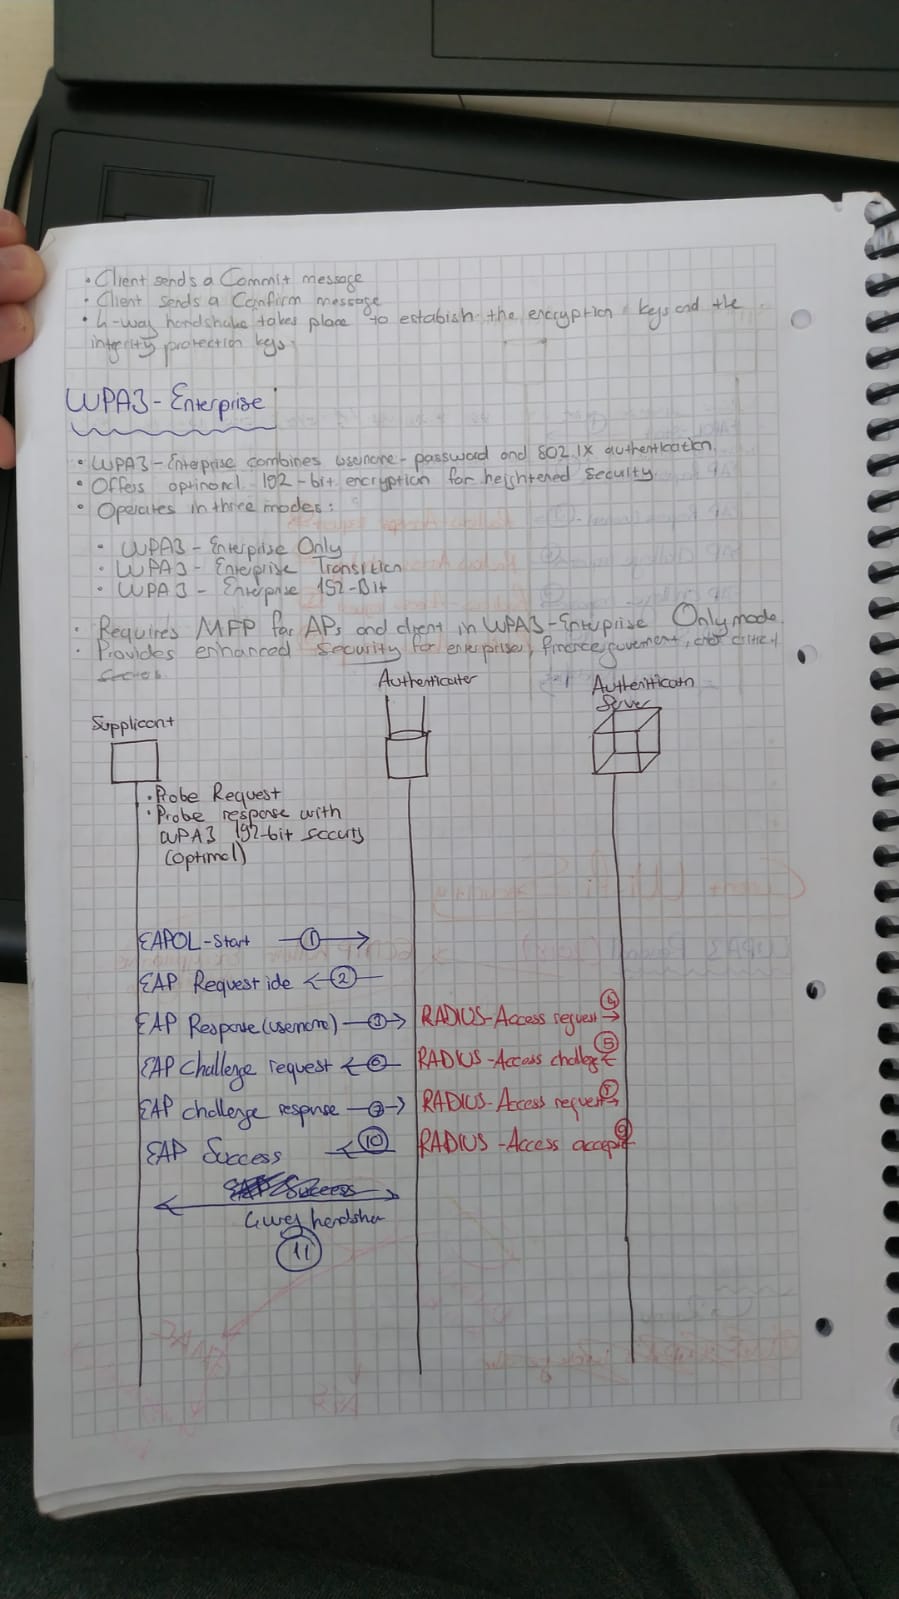 • Client sends a Commit message
• Client sends a Confirm message
• 4-way handshake takes place to estabish the encryption keys and the
integrity protection keys.
WPA3-Enterprise
• WPA3-Enterprise combines username-password and 802.1X authentication
• Offers optinonal 192-bit encryption for heightened security
• Operates in three modes:
• WPA3-Enterprise Only
• WPA3-Enterprise Transition
• WPA3-Enterprise 192-Bit
• Requires MFP for APs and client in WPA3-Enterprise Only mode.
• Provides enhanced security for enterprise, finance, government, and critical
Authenticater
Authenticatn
Server
Supplicant
• Probe Request
• Probe response with
WPA3 192-bit security
(optimal)
EAPOL-Start 1
EAP Request ide 2
EAP Response (username) 3 RADIUS-Access request 4
EAP challenge request 6 RADIUS-Access challenge 5
EAP challenge response 7 RADIUS-Access request
EAP Success 10 RADIUS-Access accept 9
4 way handshake
11